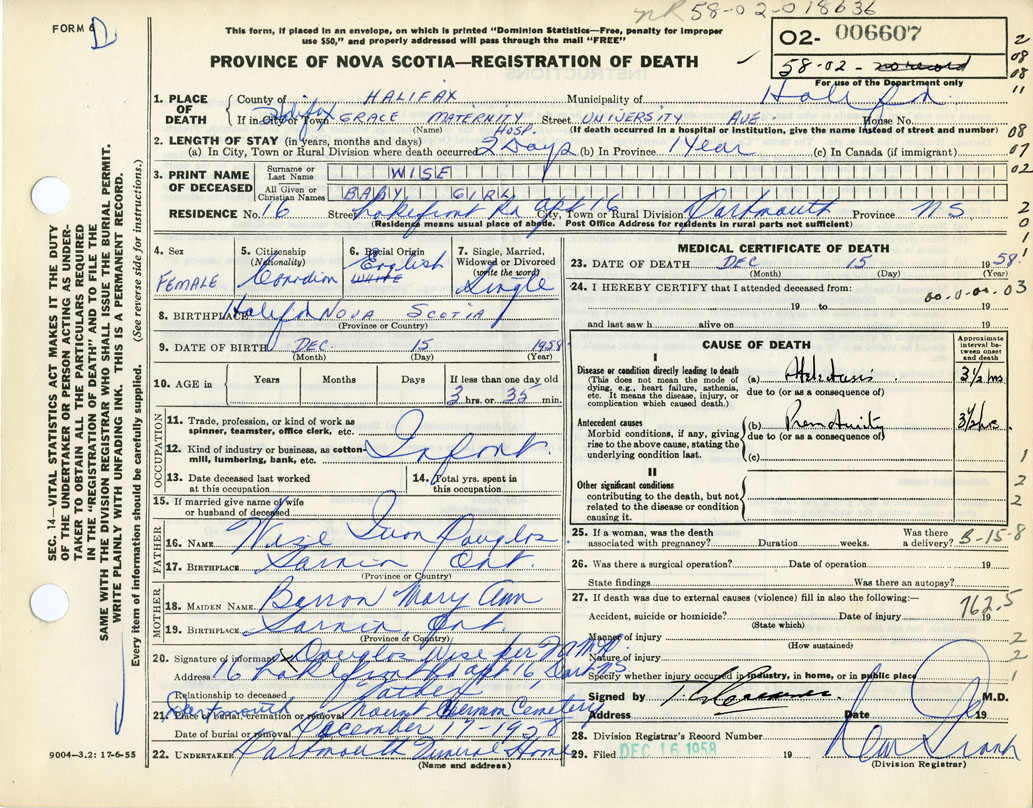 58-02-018636
FORM 6 D
This form, if placed in an envelope, on which is printed "Dominion Statistics—Free, penalty for improper
use $50," and properly addressed will pass through the mail "FREE"
PROVINCE OF NOVA SCOTIA—REGISTRATION OF DEATH
02- 006607
58-02- no record
For use of the Department only
1. PLACE OF DEATH
County of HALIFAX Municipality of Halifax
If in City or Town Halifax GRACE MATERNITY HOSP. Street UNIVERSITY AVE. House No.
(Name) (If death occurred in a hospital or institution, give the name instead of street and number)
2. LENGTH OF STAY (in years, months and days)
(a) In City, Town or Rural Division where death occurred 2 Days (b) In Province 1 Year (c) In Canada (if immigrant)
3. PRINT NAME OF DECEASED
Surname or Last Name WISE
All Given or Christian Names BABY GIRL
RESIDENCE No. 16 Street Lakefront Rd apt 16 City, Town or Rural Division Dartmouth Province NS.
(Residence means usual place of abode. Post Office Address for residents in rural parts not sufficient)
4. Sex FEMALE
5. Citizenship (Nationality) Canadian
6. Racial Origin English WHITE
7. Single, Married, Widowed or Divorced (write the word) Single
8. BIRTHPLACE Halifax NOVA SCOTIA
(Province or Country)
9. DATE OF BIRTH DEC. 15 1958
(Month) (Day) (Year)
10. AGE in Years Months Days If less than one day old
3 hrs. or 35 min.
OCCUPATION
11. Trade, profession, or kind of work as spinner, teamster, office clerk, etc.
12. Kind of industry or business, as cotton-mill, lumbering, bank, etc. Infant.
13. Date deceased last worked at this occupation
14. Total yrs. spent in this occupation
15. If married give name of wife or husband of deceased
FATHER
16. NAME Wise Ivon Douglas
17. BIRTHPLACE Sarnia Ont.
(Province or Country)
MOTHER
18. MAIDEN NAME Barron Mary Ann
19. BIRTHPLACE Sarnia, Ont.
(Province or Country)
20. Signature of informant Douglas Wise per
Address 16 Lakefront Rd apt 16, Dart NS
Relationship to deceased Father
21. Place of burial, cremation or removal Dartmouth Mount Hermon Cemetery
Date of burial or removal December 17-1958
22. UNDERTAKER Dartmouth Funeral Home
(Name and address)
9004—3.2: 17-6-55
MEDICAL CERTIFICATE OF DEATH
23. DATE OF DEATH DEC 15 1958
(Month) (Day) (Year)
24. I HEREBY CERTIFY that I attended deceased from:
19 to 19
and last saw h alive on 19
CAUSE OF DEATH
Approximate interval between onset and death
I
Disease or condition directly leading to death
(This does not mean the mode of dying, e.g., heart failure, asthenia, etc. It means the disease, injury, or complication which caused death.)
(a) Atelectasis 3 1/2 hrs
due to (or as a consequence of)
Antecedent causes
Morbid conditions, if any, giving rise to the above cause, stating the underlying condition last.
(b) Prematurity 3 1/2 hrs
due to (or as a consequence of)
(c)
II
Other significant conditions
contributing to the death, but not related to the disease or condition causing it.
25. If a woman, was the death associated with pregnancy? Duration weeks. Was there a delivery? B-15-8
26. Was there a surgical operation? Date of operation 19
State findings Was there an autopsy?
27. If death was due to external causes (violence) fill in also the following:—
762.5
Accident, suicide or homicide? Date of injury 19
(State which)
Manner of injury
(How sustained)
Nature of injury
Specify whether injury occurred in industry, in home, or in public place
Signed by M.D.
Address Date 19
28. Division Registrar's Record Number
29. Filed DEC 16 1958 19
(Division Registrar)
SEC. 14—VITAL STATISTICS ACT MAKES IT THE DUTY
OF THE UNDERTAKER OR PERSON ACTING AS UNDER-
TAKER TO OBTAIN ALL THE PARTICULARS REQUIRED
IN THE "REGISTRATION OF DEATH" AND TO FILE THE
SAME WITH THE DIVISION REGISTRAR WHO SHALL ISSUE THE BURIAL PERMIT.
WRITE PLAINLY WITH UNFADING INK. THIS IS A PERMANENT RECORD.
Every item of information should be carefully supplied. (See reverse side for instructions.)